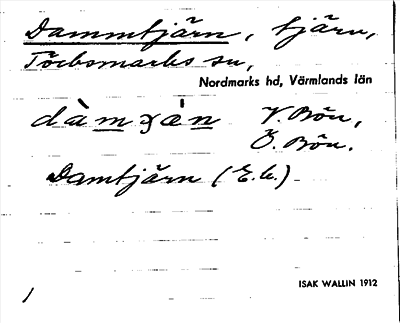 Dammtjärn, tjärn,
Töcksmarks sn,
Nordmarks hd, Värmlands län
V. Bön,
Ö. Bön.
Damtjärn (E.k.)
ISAK WALLIN 1912